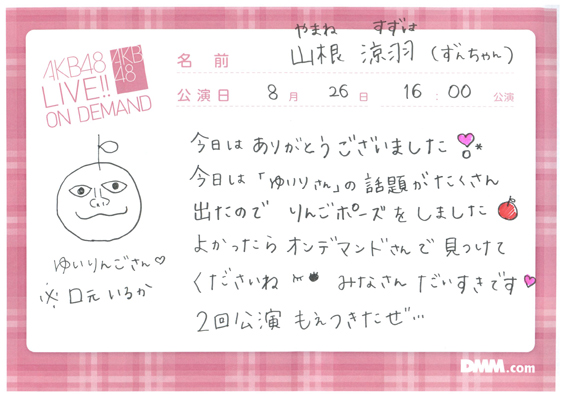 AKB48
LIVE!!
ON DEMAND
AKB
48
やまね すずは
名前 山根 涼羽 (ずんちゃん)
公演日 8月 26日 16:00 公演
今日は ありがとうございました
今日は「ゆいりさん」の 話題が たくさん
出たので りんごポーズを しました
よかったら オンデマンドさんで 見つけて
くださいね みなさん だいすきです
2回公演 もえつきたぜ…
ゆいりんごさん♡
※ 口元 いるか
DMM.com